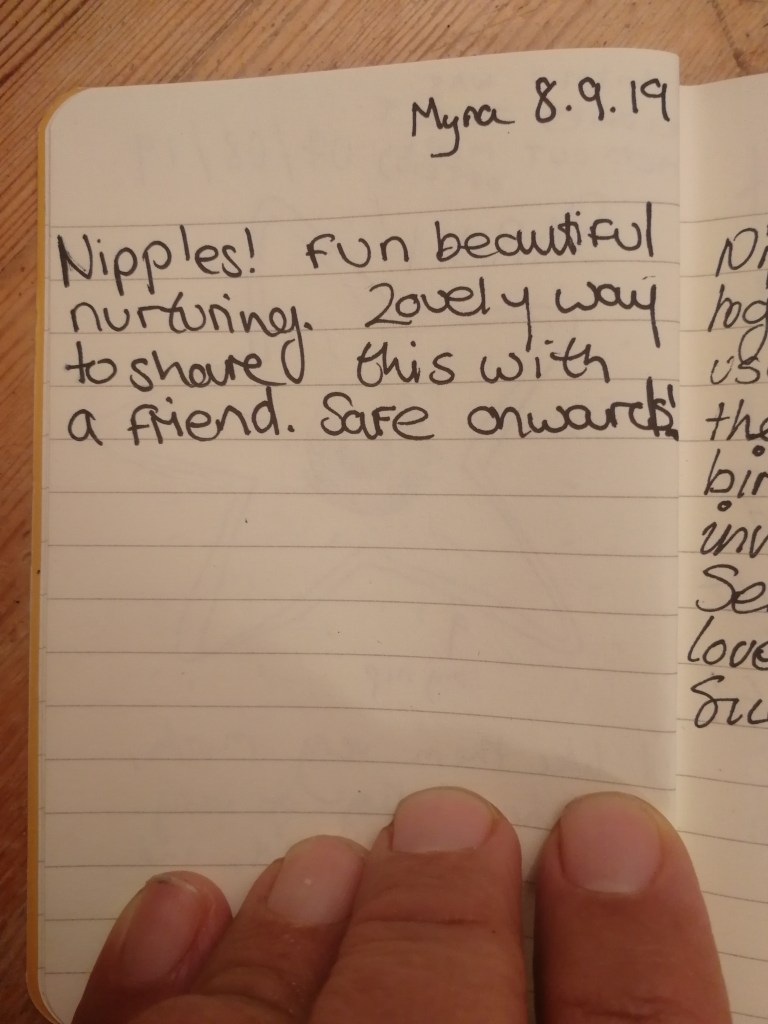 Myna 8.9.19
Nipples! Fun beautiful
nurturing. Lovely way
to share this with
a friend. Safe onwards!
the
love